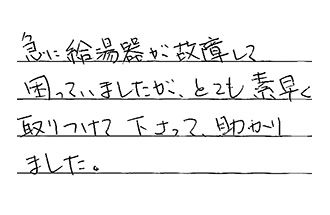 急に給湯器が故障して
困っていましたが、とても素早く
取りつけて下さって、助かり
ました。